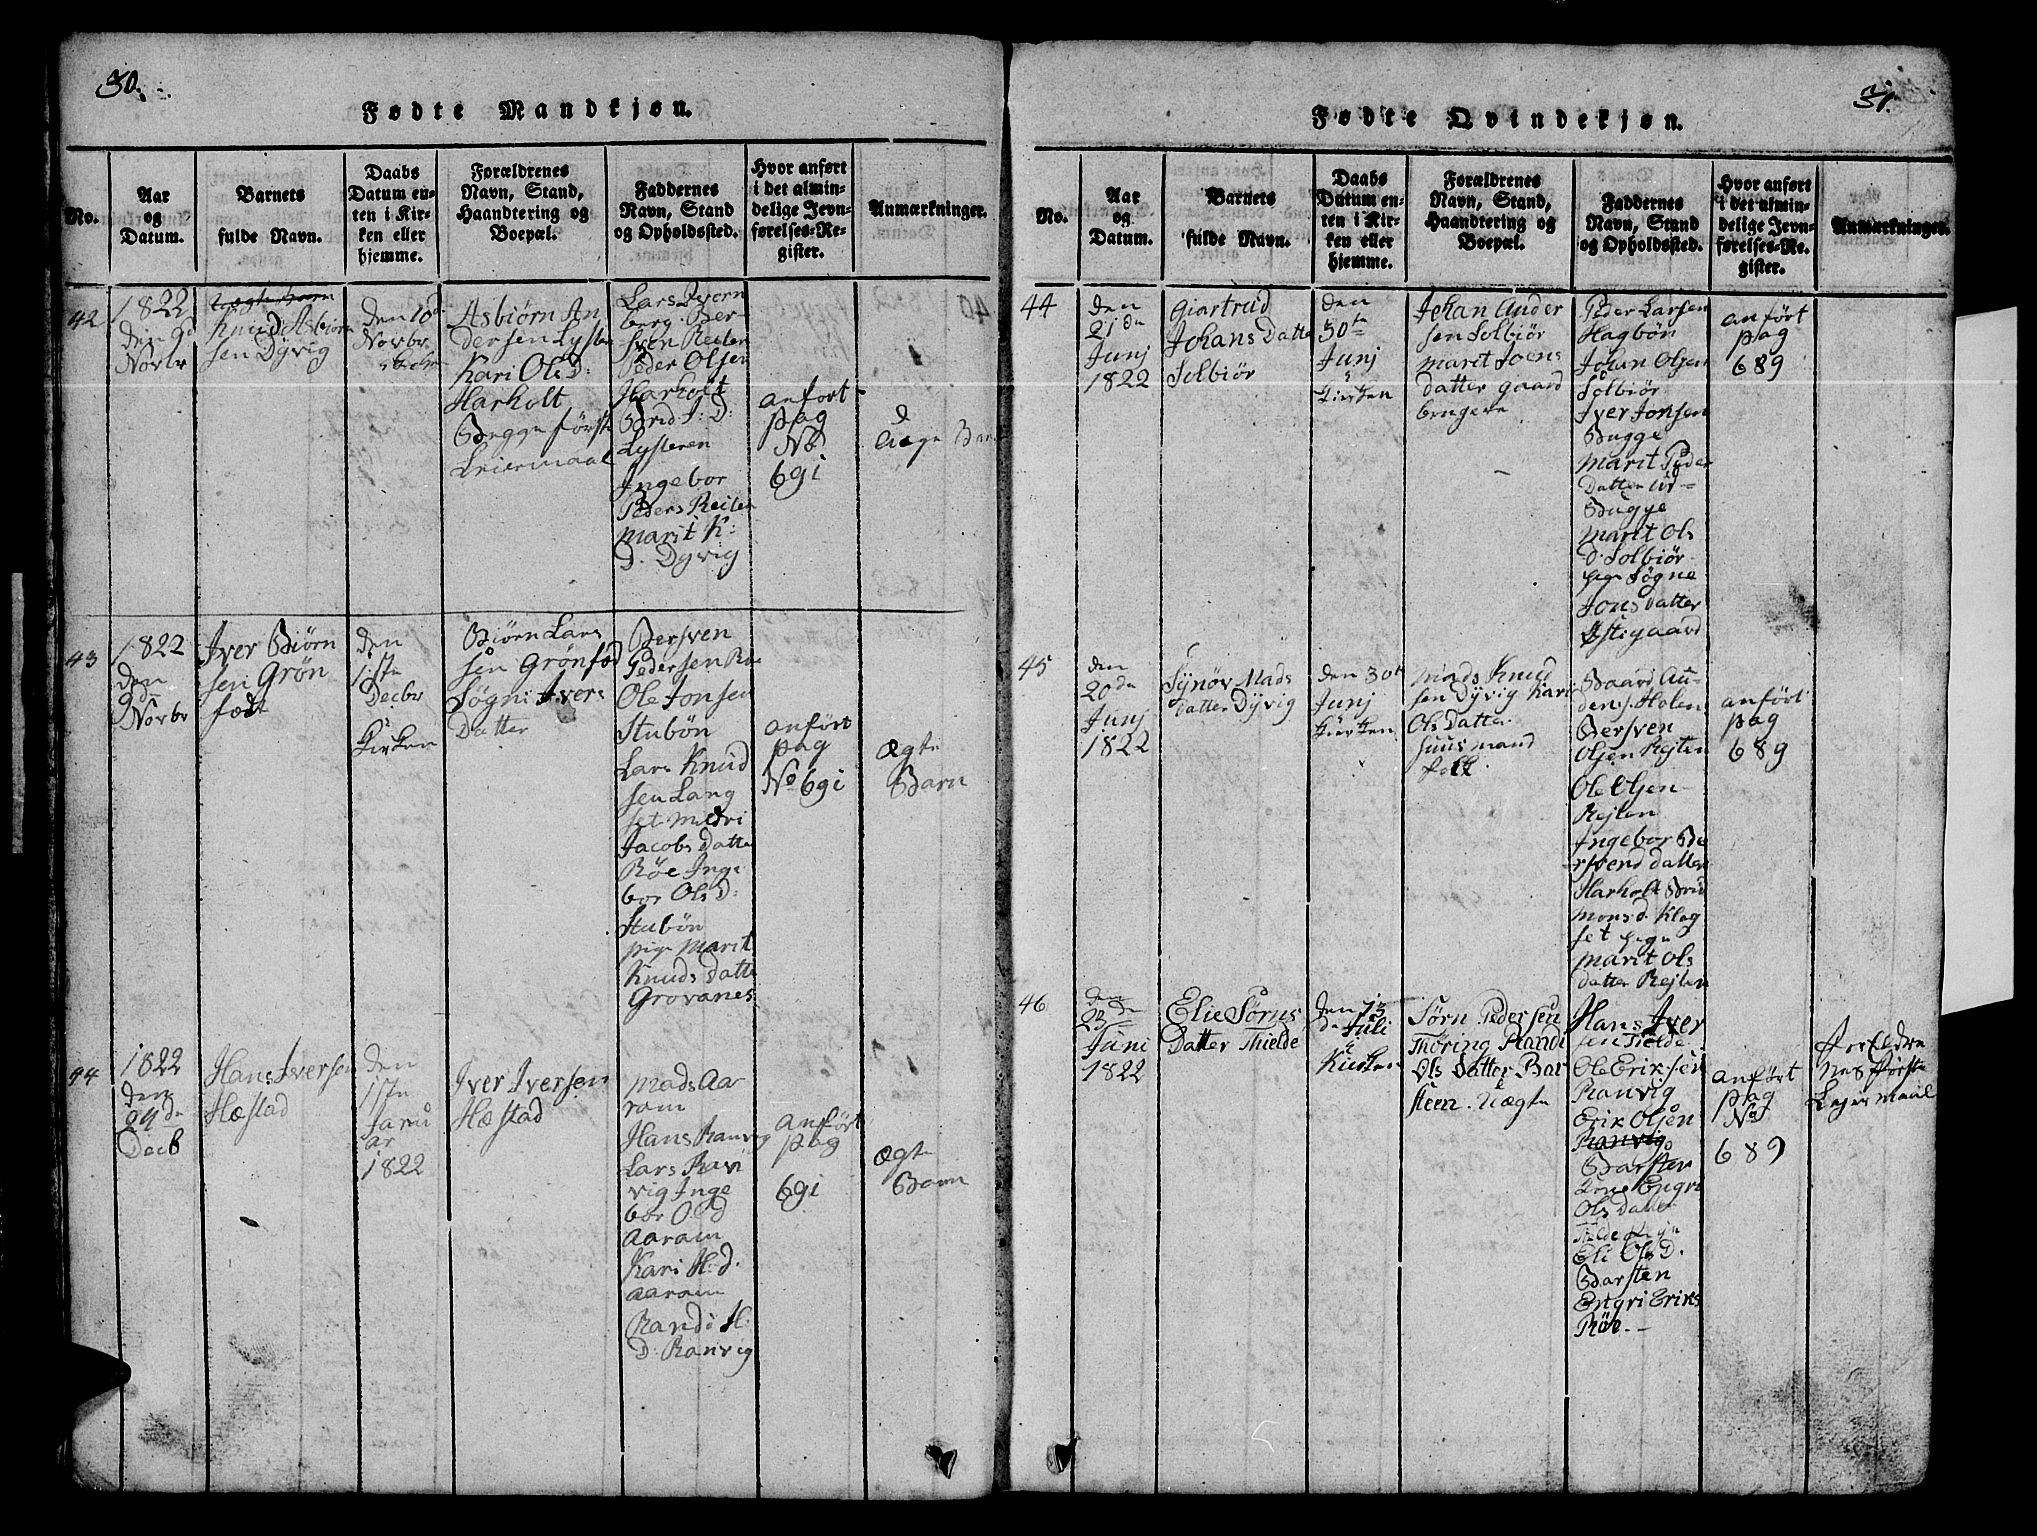 30.
Fødte Mandkjøn.
No.
Aar
og
Datum.
Barnets
fulde Navn.
Daabs
Datum en-
ten i Kir-
ken eller
hjemme.
Forældrenes
Navn, Stand,
Haandtering og
Boepæl.
Faddernes
Navn, Stand
og Opholdssted.
Hvor anført
i det almin-
delige Jevn-
førelses-Re-
gister.
Anmærkninger.
42
1822
den 9d
Novbr
Knud Asbiørn
sen Dÿvig
Den 10d
Novbr
Asbiørn An
dersen Lysten
Kari Ols D:
Harholt
Begge første
Leiermaal
Lars Ivern
berg. Ber-
sven Reiten
Peder Olsen
Harholt
Brid J: D:
Lysteren
Ingebor
Peders Reiten
Marit K:
D. Dyvig
anført
pag
No
691
Barn
43
1822
den
9
Novbr
Iver Biørn
sen Grøn
fædt
den
1ste
Decbr
Kirken
Biørn Lars
sen Grønfæd
Søgni Ivers
Datter
Bersven
Pedersen
Ole Jonsen
Stubøn
Lars Knud
sen Lang
set
Jacobs Datte
Røe Inge
bor Ols D:
Stubøn
pige Marit
Knuds Datte
Grovanes
anført
pag
No 691
Ægte
Barn
44
1822
den
29de
Decb
Hans Iversen
Hæstad
den
1ste
Janu
ar
1822
Iver Iversen
Hæstad
Mads Aa
ram
Hans Ranvig
Lars Ran
vig Inge
bor O. D
Aaram
Kari H: d.
Aaram
Randi H:
D. Ranvig
anført
pag
691
Ægte
Barn
31.
Fødte Qvindekjøn.
No.
Aar
og
Datum.
Barnets
fulde Navn.
Daabs
Datum en-
ten i Kir-
ken eller
hjemme.
Forældrenes
Navn, Stand,
Haandtering og
Boepæl.
Faddernes
Navn, Stand
og Opholdssted.
Hvor anført
i det almin-
delige Jevn-
førelses-Re-
gister.
Anmærkninger.
44
den
21de
Junj
1822
Giartrud
Johans Datte
Solbiør
den
30te
Junj
i
Kirken
Johan Ander
sen Solbiør
Marit Joens
datter gaard
brugere
Peder Larsen
Hagbøn
Johan Olsen
Solbiør
Iver Jonsen
Bugge
Marit Peder
Datter
Bugge
Marit Ols
D. Solbiør
pige Søgne
Jons Datter
Østigaard
anført
pag
689
45
den
20de
Junj
1822
Synøv Mads
datter Dÿvig
den 30te
Junj
Kirken
Mads Knud
sen Dÿvig Kari
Ols Datter
Huusmand
folk
Baard Au-
dens. Holen
Bersven
Olsen Rejten
Ole Olsen
Rejten
Ingebor Be
rsvend datter
Harholt Brid
Monsd. Klag
set pige
Marit Ols
datter Rejten
anført
pag
689
46
den
23de
Juni
1822
Elie Sørns
Datter Thielde
den
Juli
i
Kirken
Sørn Pedersen
Thøring Randi
Ols Datter Bar
steen. Uægte
Hans Iver
sen Tielde
Ole Eriksen
Ranvig
Erik Olsen
Ranvig
Barsten
Engri
Ols datter
Tielde Pign
Eli Ols D.
Barsten
Engri Eriks
Røe. -
anført
pag
No
689
Foreldre
nes første
Lejermaal